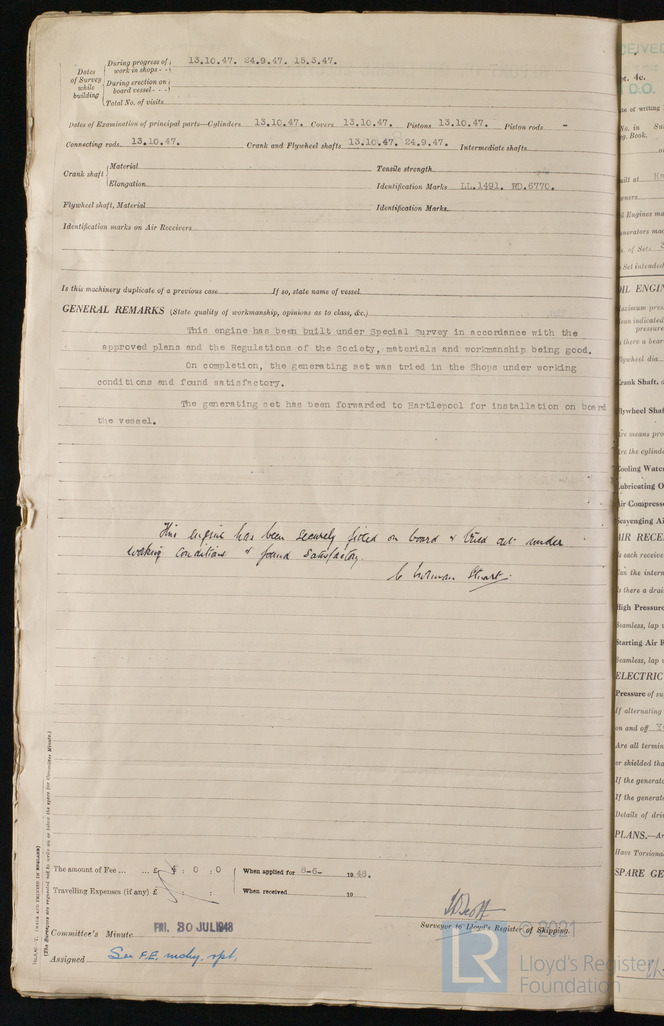 Dates of Survey while building
During progress of work in shops - - 13.10.47. 24.9.47. 15.3.47.
During erection on board vessel - - -
Total No. of visits
Dates of Examination of principal parts—Cylinders 13.10.47. Covers 13.10.47. Pistons 13.10.47. Piston rods -
Connecting rods 13.10.47. Crank and Flywheel shafts 13.10.47. 24.9.47. Intermediate shafts
Crank shaft Material Tensile strength
Elongation Identification Marks LL.1491. RD.6770.
Flywheel shaft, Material Identification Marks
Identification marks on Air Receivers
Is this machinery duplicate of a previous case If so, state name of vessel
GENERAL REMARKS (State quality of workmanship, opinions as to class, &c.)
This engine has been built under Special Survey in accordance with the
approved plans and the Regulations of the Society, materials and workmanship being good.
On completion, the generating set was tried in the Shops under working
conditions and found satisfactory.
The generating set has been forwarded to Hartlepool for installation on board
the vessel.
This engine has been securely fitted on board & tried out under
working conditions & found satisfactory.
C Norman Stuart.
The amount of Fee ... ... £ : 0 : 0 When applied for 8-6- 1948.
Travelling Expenses (if any) £ : : When received 19
Surveyor to Lloyd's Register of Shipping.
Committee's Minute FRI. 30 JUL 1948
Assigned See F.E. mchy. rpt.
(The Surveyors are requested not to write on or below the space for Committee Minute.)
© 2021
LR
Lloyd's Register
Foundation
CEIVED
D.O.
OIL ENGIN
Crank Shaft,
Cooling Water
Lubricating O
Air Compress
Scavenging Ai
AIR RECE
High Pressure
Seamless, lap
Starting Air R
Seamless, lap
ELECTRIC
Pressure of
If alternating
on and off
Are all termin
or shielded tha
If the generat
If the generat
Details of
PLANS.—
Have Torsiona
SPARE GE